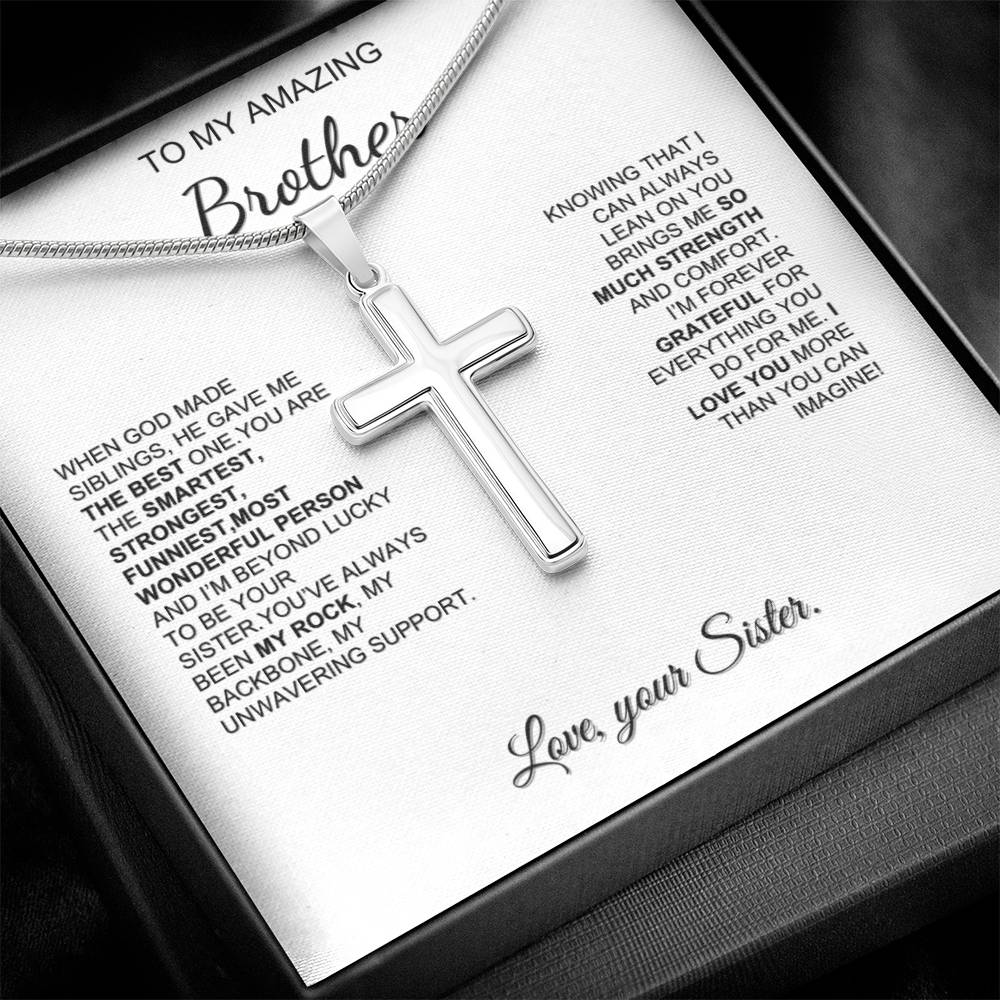 TO MY AMAZING
Brother
WHEN GOD MADE
SIBLINGS, HE GAVE ME
THE BEST ONE.YOU ARE
THE SMARTEST,
STRONGEST,
FUNNIEST,MOST
WONDERFUL PERSON
AND I'M BEYOND LUCKY
TO BE YOUR
SISTER.YOU'VE ALWAYS
BEEN MY ROCK, MY
BACKBONE, MY
UNWAVERING SUPPORT.
KNOWING THAT I
CAN ALWAYS
LEAN ON YOU
BRINGS ME SO
MUCH STRENGTH
AND COMFORT.
I'M FOREVER
GRATEFUL FOR
EVERYTHING YOU
DO FOR ME. I
LOVE YOU MORE
THAN YOU CAN
IMAGINE!
Love, your Sister.